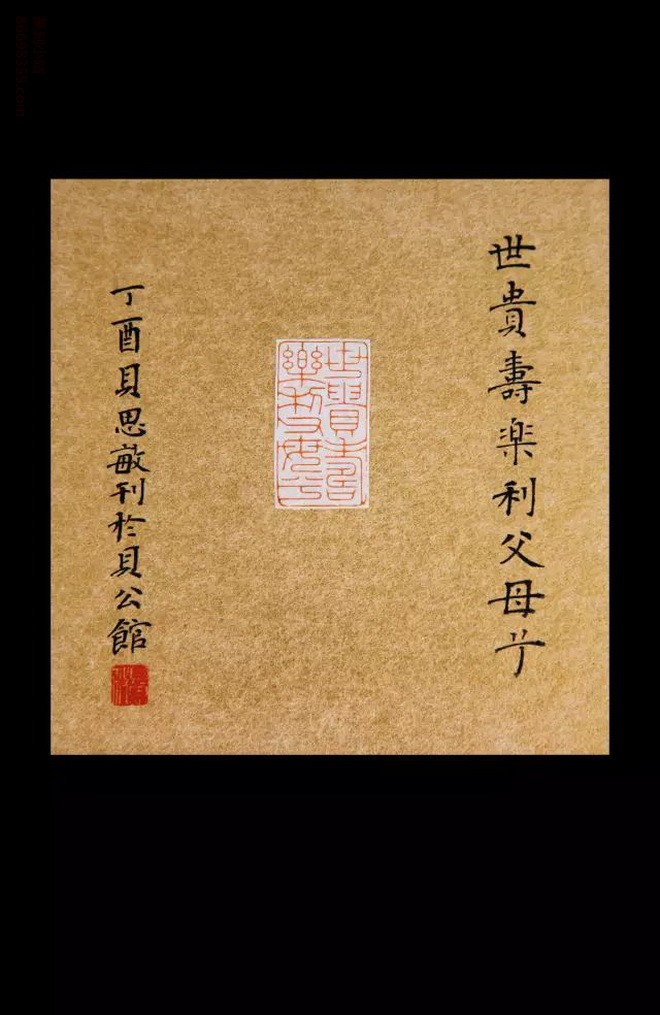 世貴壽楽利父母兮
世貴壽
樂利父母兮
丁酉貝思敏刊於貝公館